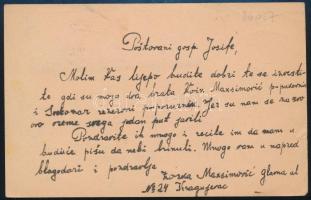 Poštovani gosp Josife,
Molim Vas lijepo budite dobri te se izvesti
te gdi su moja dva brata Kosta Maksimović pupudorni
i Svetozar rezervni poporučnik, jer su nam se za ovo
ovo vreme svega jedan put javili
Pozdravite ih mnogo i recite im da nam u
buduće pišu da nebi brinuli. Mnogo vam u napred
blagodari i pozdravlja
Zorka Maksimović Glavna ul
№ 24 Kragujevac